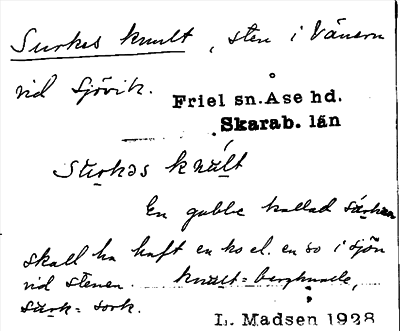 Surkes knult, sten i Vänern
vid Sjövik.
Friel sn. Åse hd.
Skarab. län
Surkəs knult
En gubbe kallad
skall ha haft en ko el. en so i sjön
vid stenen. knult = bergknalle,
surk = sork.
L. Madsen 1928